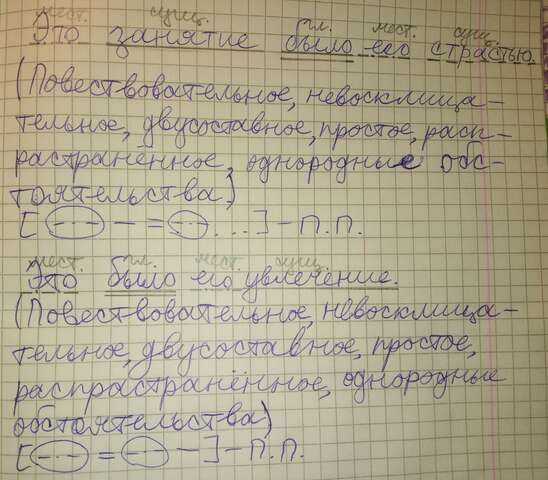 мест. сущ. гл. мест. сущ.
Это занятие было его страстью.
(Повествовательное, невосклица-
тельное, двусоставное, простое, расп-
распранённое, однородные обс-
тоятельства)
[-.-.- — = -.-. ...] – П.П.
мест. гл. мест. сущ.
Это было его увлечение.
(Повествовательное, невосклица-
тельное, двусоставное, простое,
распрастранённое, однородные
обстоятельства)
[-.-.- = -.-.- —] – П.П.